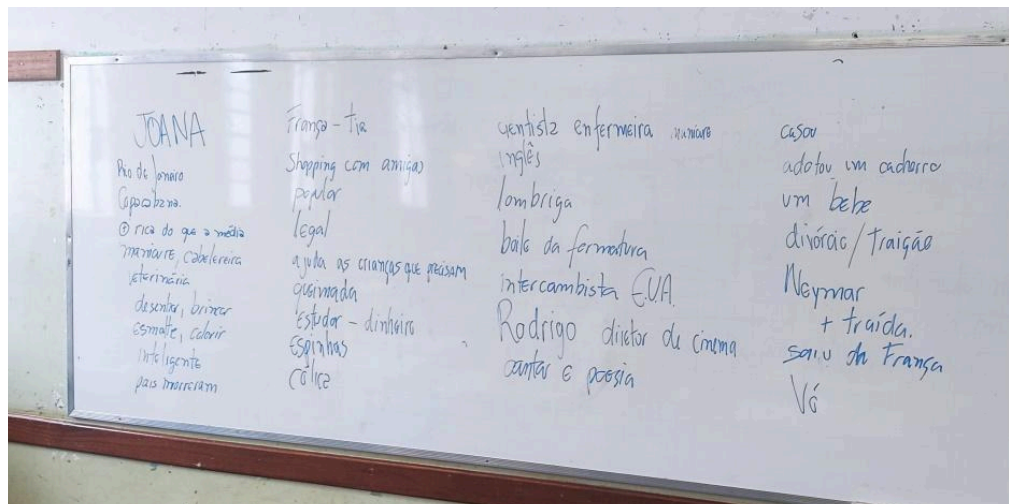 JOANA
Rio de Janeiro
Copacabana.
⊕ rica do que a média
manicure, cabelereira
veterinária
desenhar, brincar
esmalte, colorir
inteligente
pais morreram
França - tia
Shopping com amigas
popular
legal
ajuda as crianças que precisam
queimada
estudar - dinheiro
Espinhas
cólica
dentista enfermeira
inglês
lombriga
baile da formatura
intercambista E.U.A.
Rodrigo diretor de cinema
cantar e poesia
casou
adotou um cachorro
um bebe
divórcio / traição
Neymar
+ traída.
saiu da França
Vó